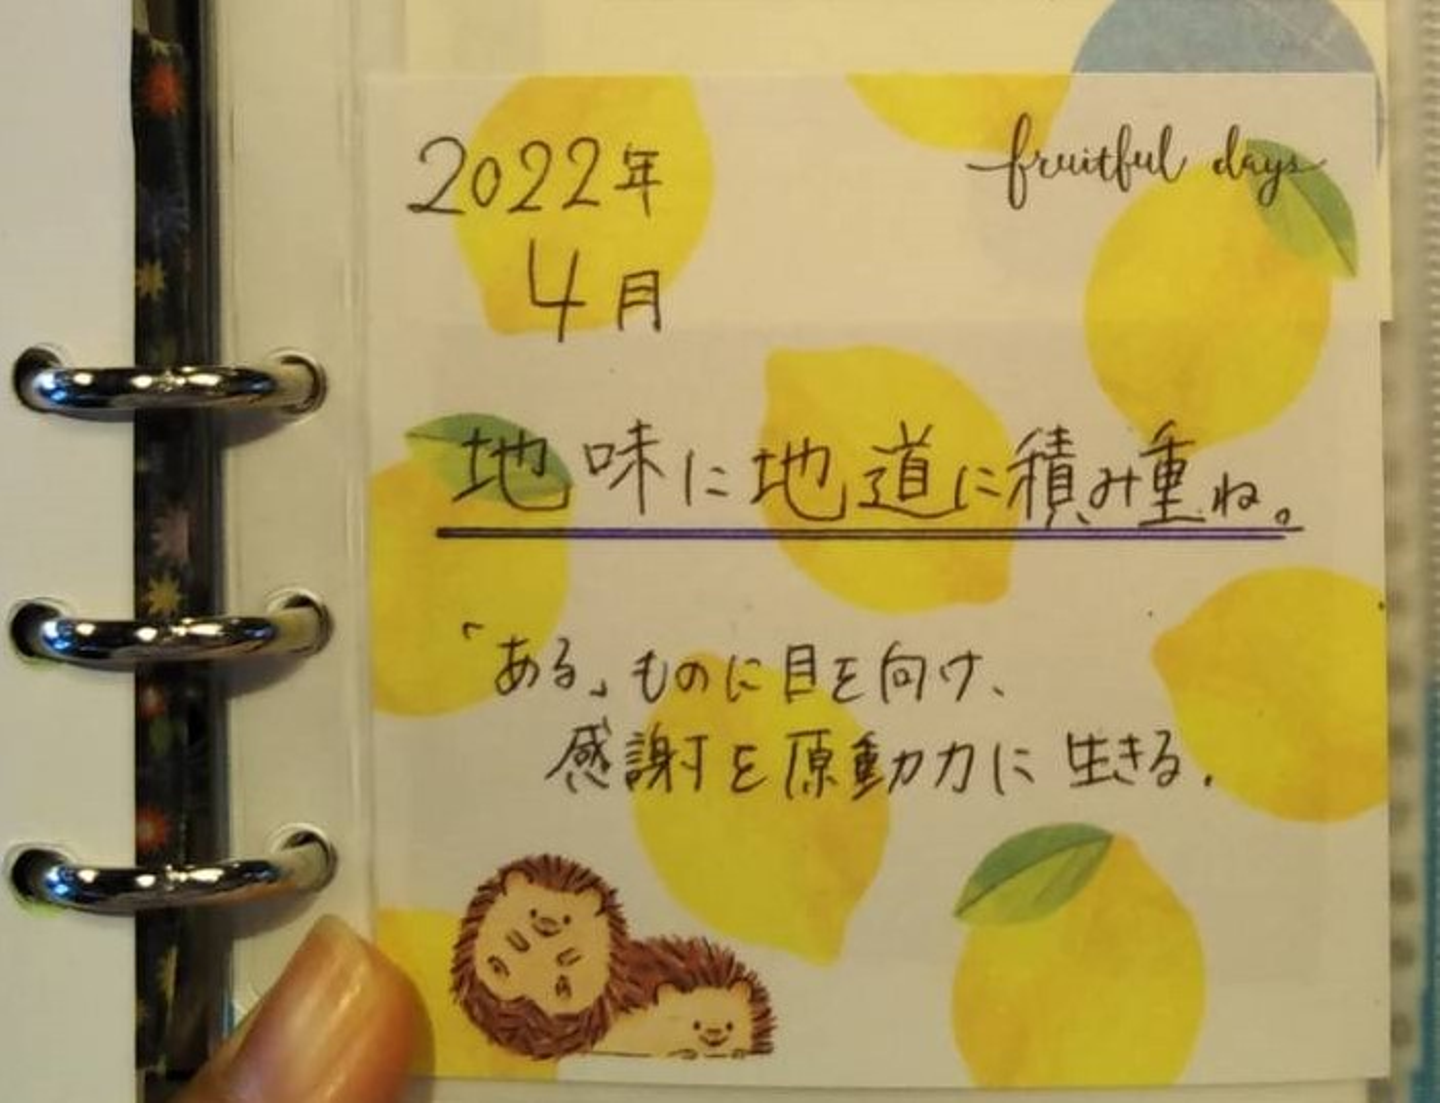 2022年
4月
fruitful days
地味に地道に積み重ね。
「ある」ものに目を向け、
感謝を原動力に生きる.